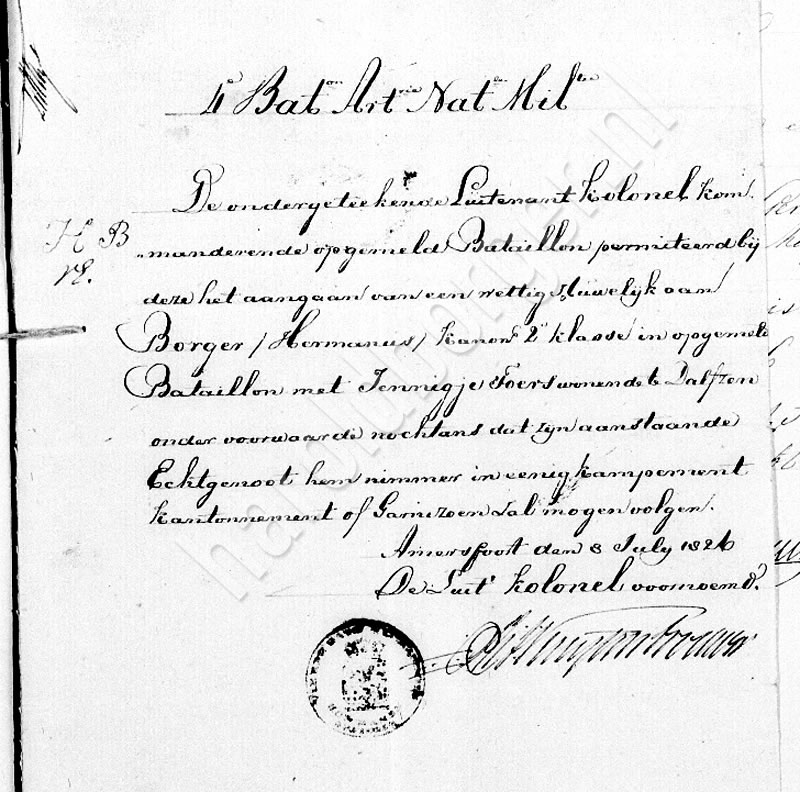 4e Baton Artrie Natle Miltie
De ondergeteekende Luitenant Kolonel kom-
manderende opgemeld Bataillon permiteerd bij
H B
deze het aangaan van een wettig Huwelijk aan
Borger / Hermanus / Kanonr 2e klasse in opgemeld
Bataillon met Jennigje Foers wonende te Dalfzen
onder voorwaarde nochtans dat zyn aanstaande
Echtgenoot hem nimmer in eenig kampement
kantonnement of Garnizoen zal mogen volgen.
Amersfoort den 8 July 1826
De Luitt Kolonel voornoemd.